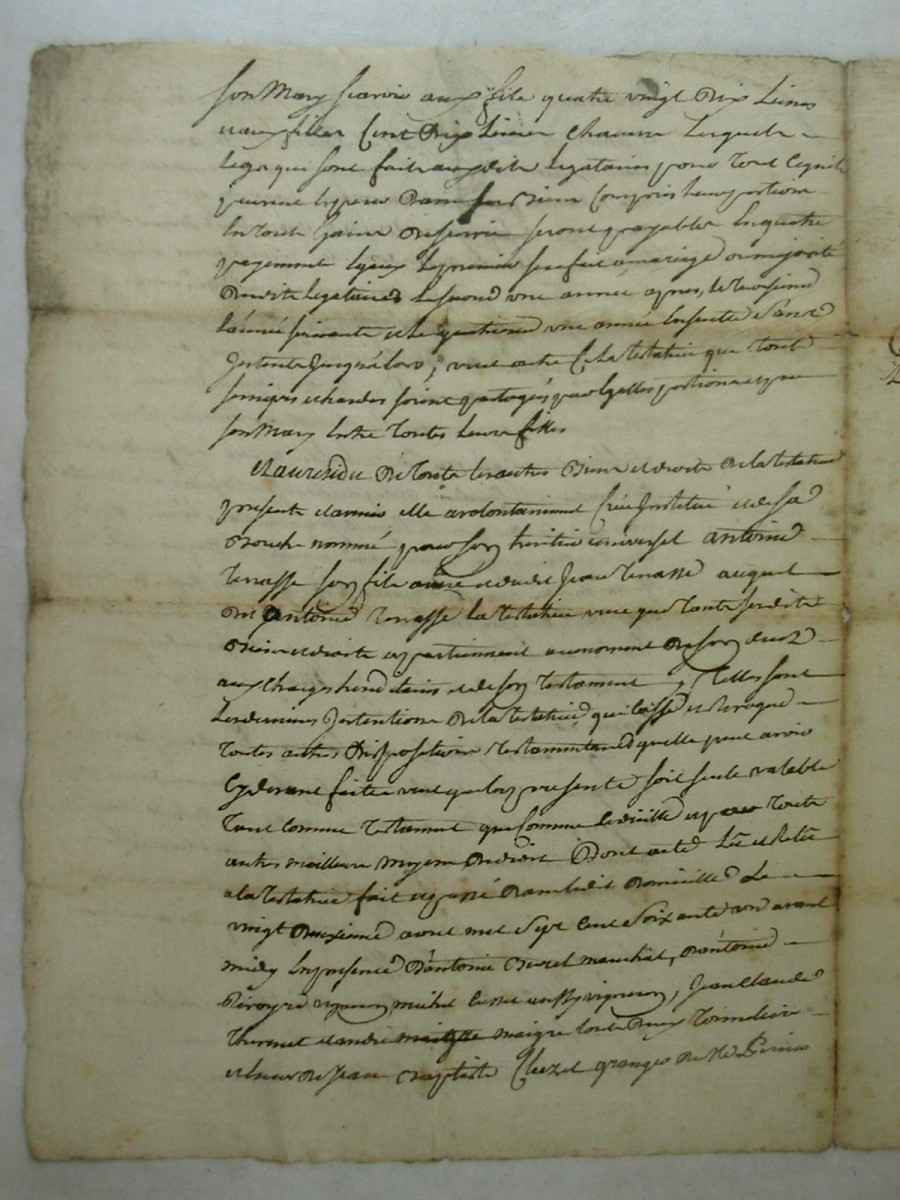 son mary scavoir aux fils quatre vingt dix livres
et aux filles cent dix livres chacune lesquels
legs qui sont fait auxdits legataires pour tout ce qu'ils
peuvent esperer dans ses biens compris leur portion
en toute gaine de survie seront payables en quatre
payements egaux le premier sera fait a mariage ou majorité
desdits legataires le second une année apres, le troisieme
l'année suivante et le quatrieme une année ensuitte sans
jusqu'alors, veut outre ce la testatrice que tout
ses nipes et hardes soient partagés par egalles portions
son mary entre toutes leurs filles
et au residu de touts les autres biens et droits de la testatrice
presents et avenir elle a volontairement créé institué et de sa
bouche nommé pour son heritier universel antoine
terrasse son fils et dudit jean terrasse auquel
dit antoine terrasse la testatrice veut que touts sesdits
biens et droits appartiennent au moment de son deces
aux charges hereditaires et de son testament, telles sont
les dernieres intentions de la testatrice qui casse et revoque
toutes autres dispositions testamentaires qu'elle peut avoir
cy devant faites veut que le present soit seul valable
tant comme testament que comme codicille et par touts
autres meilleurs moyens de droit Dont acte Lû et Relû
a la testatrice fait et passé dans ledit domicille le
vingt deuxieme avril mil sept cent soixante un avant
midy en presence d'antoine marechal, d'antoine
vigneron, michel aussy vigneron, jean claude
et andré maigre touts deux tonnelliers
et encor de jean baptiste granger de